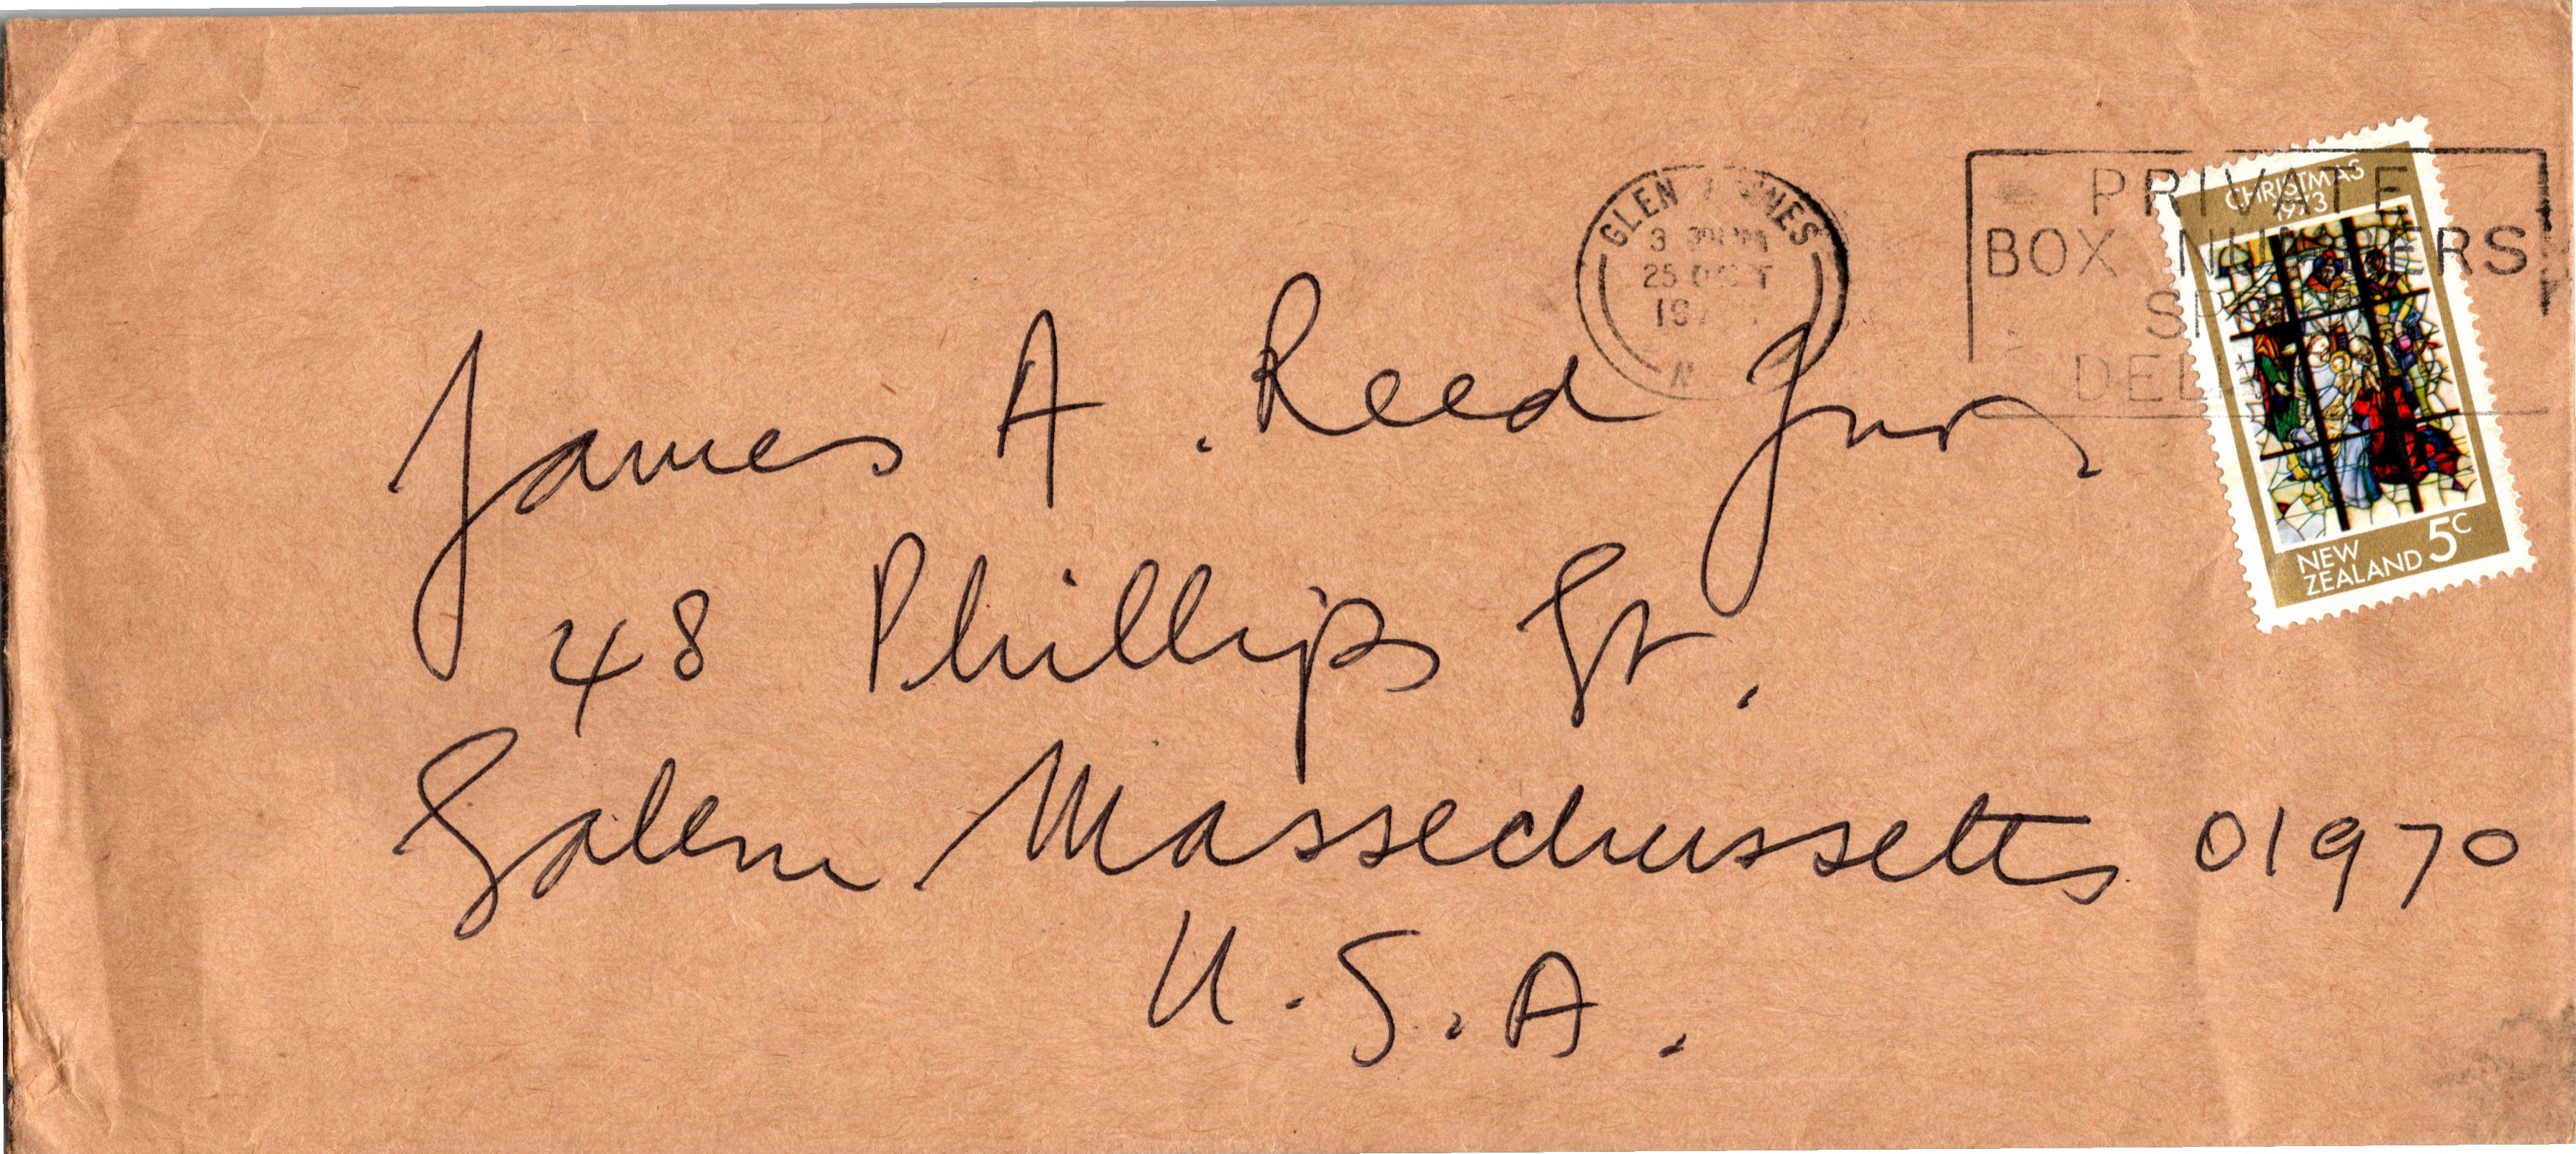 GLEN
3 30 PM
25 OCT
PRIVATE
BOX NUMBERS
CHRISTMAS
1973
NEW
ZEALAND 5c
James A. Reed Jnr
48 Phillips St.
Salem Massechussetts 01970
U.S.A.